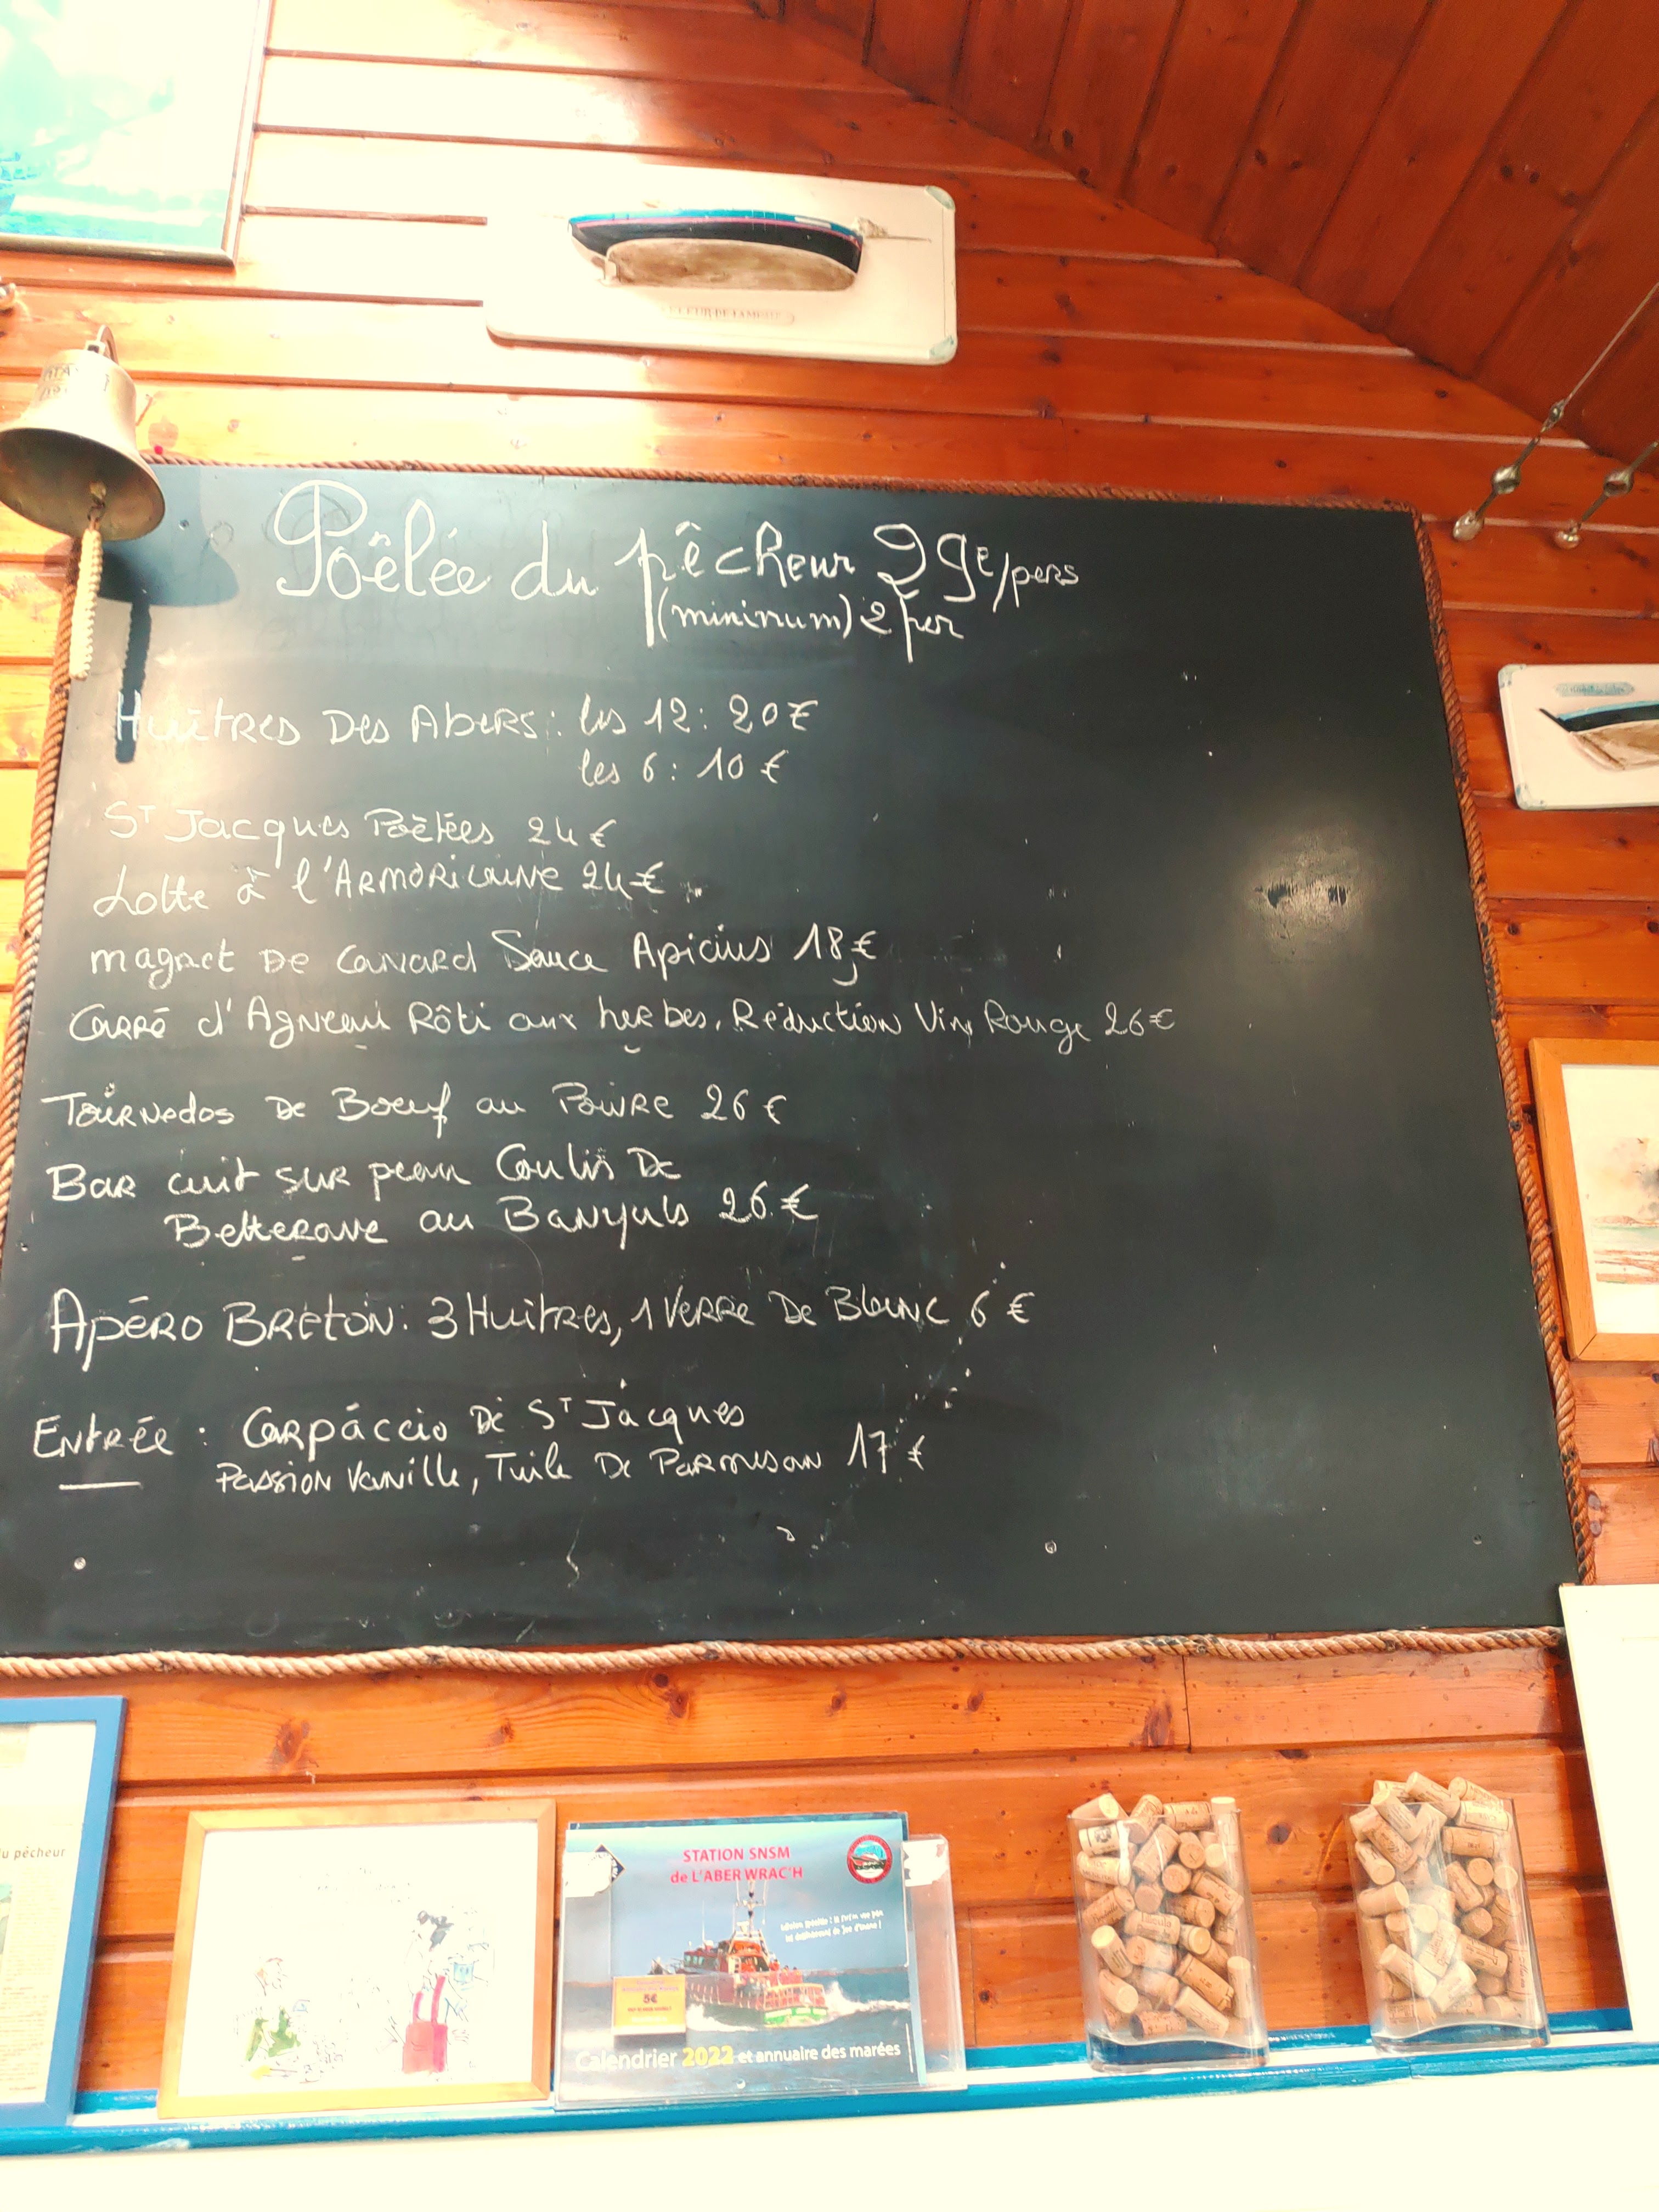 Poêlée du pêcheur 29€/pers
(mininum) 2 per
Huîtres Des Abers : les 12 : 20€
les 6 : 10 €
St Jacques Poêlées 24€
Lotte à l'Armoricaine 24€
magret De Canard Sauce Apicius 18€
Carré d'Agneau Rôti aux herbes, Réduction Vin Rouge 26€
Tournedos De Boeuf au Poivre 26€
Bar cuit sur peau Coulis De
Betterave au Banyuls 26.€
Apéro Breton : 3 Huitres, 1 Verre De Blanc 6 €
Entrée : Carpaccio De St Jacques
Passion Vanille, Tuile De Parmesan 17 €
du pêcheur
STATION SNSM
de L'ABER WRAC'H
5€
Calendrier 2022 et annuaire des marées